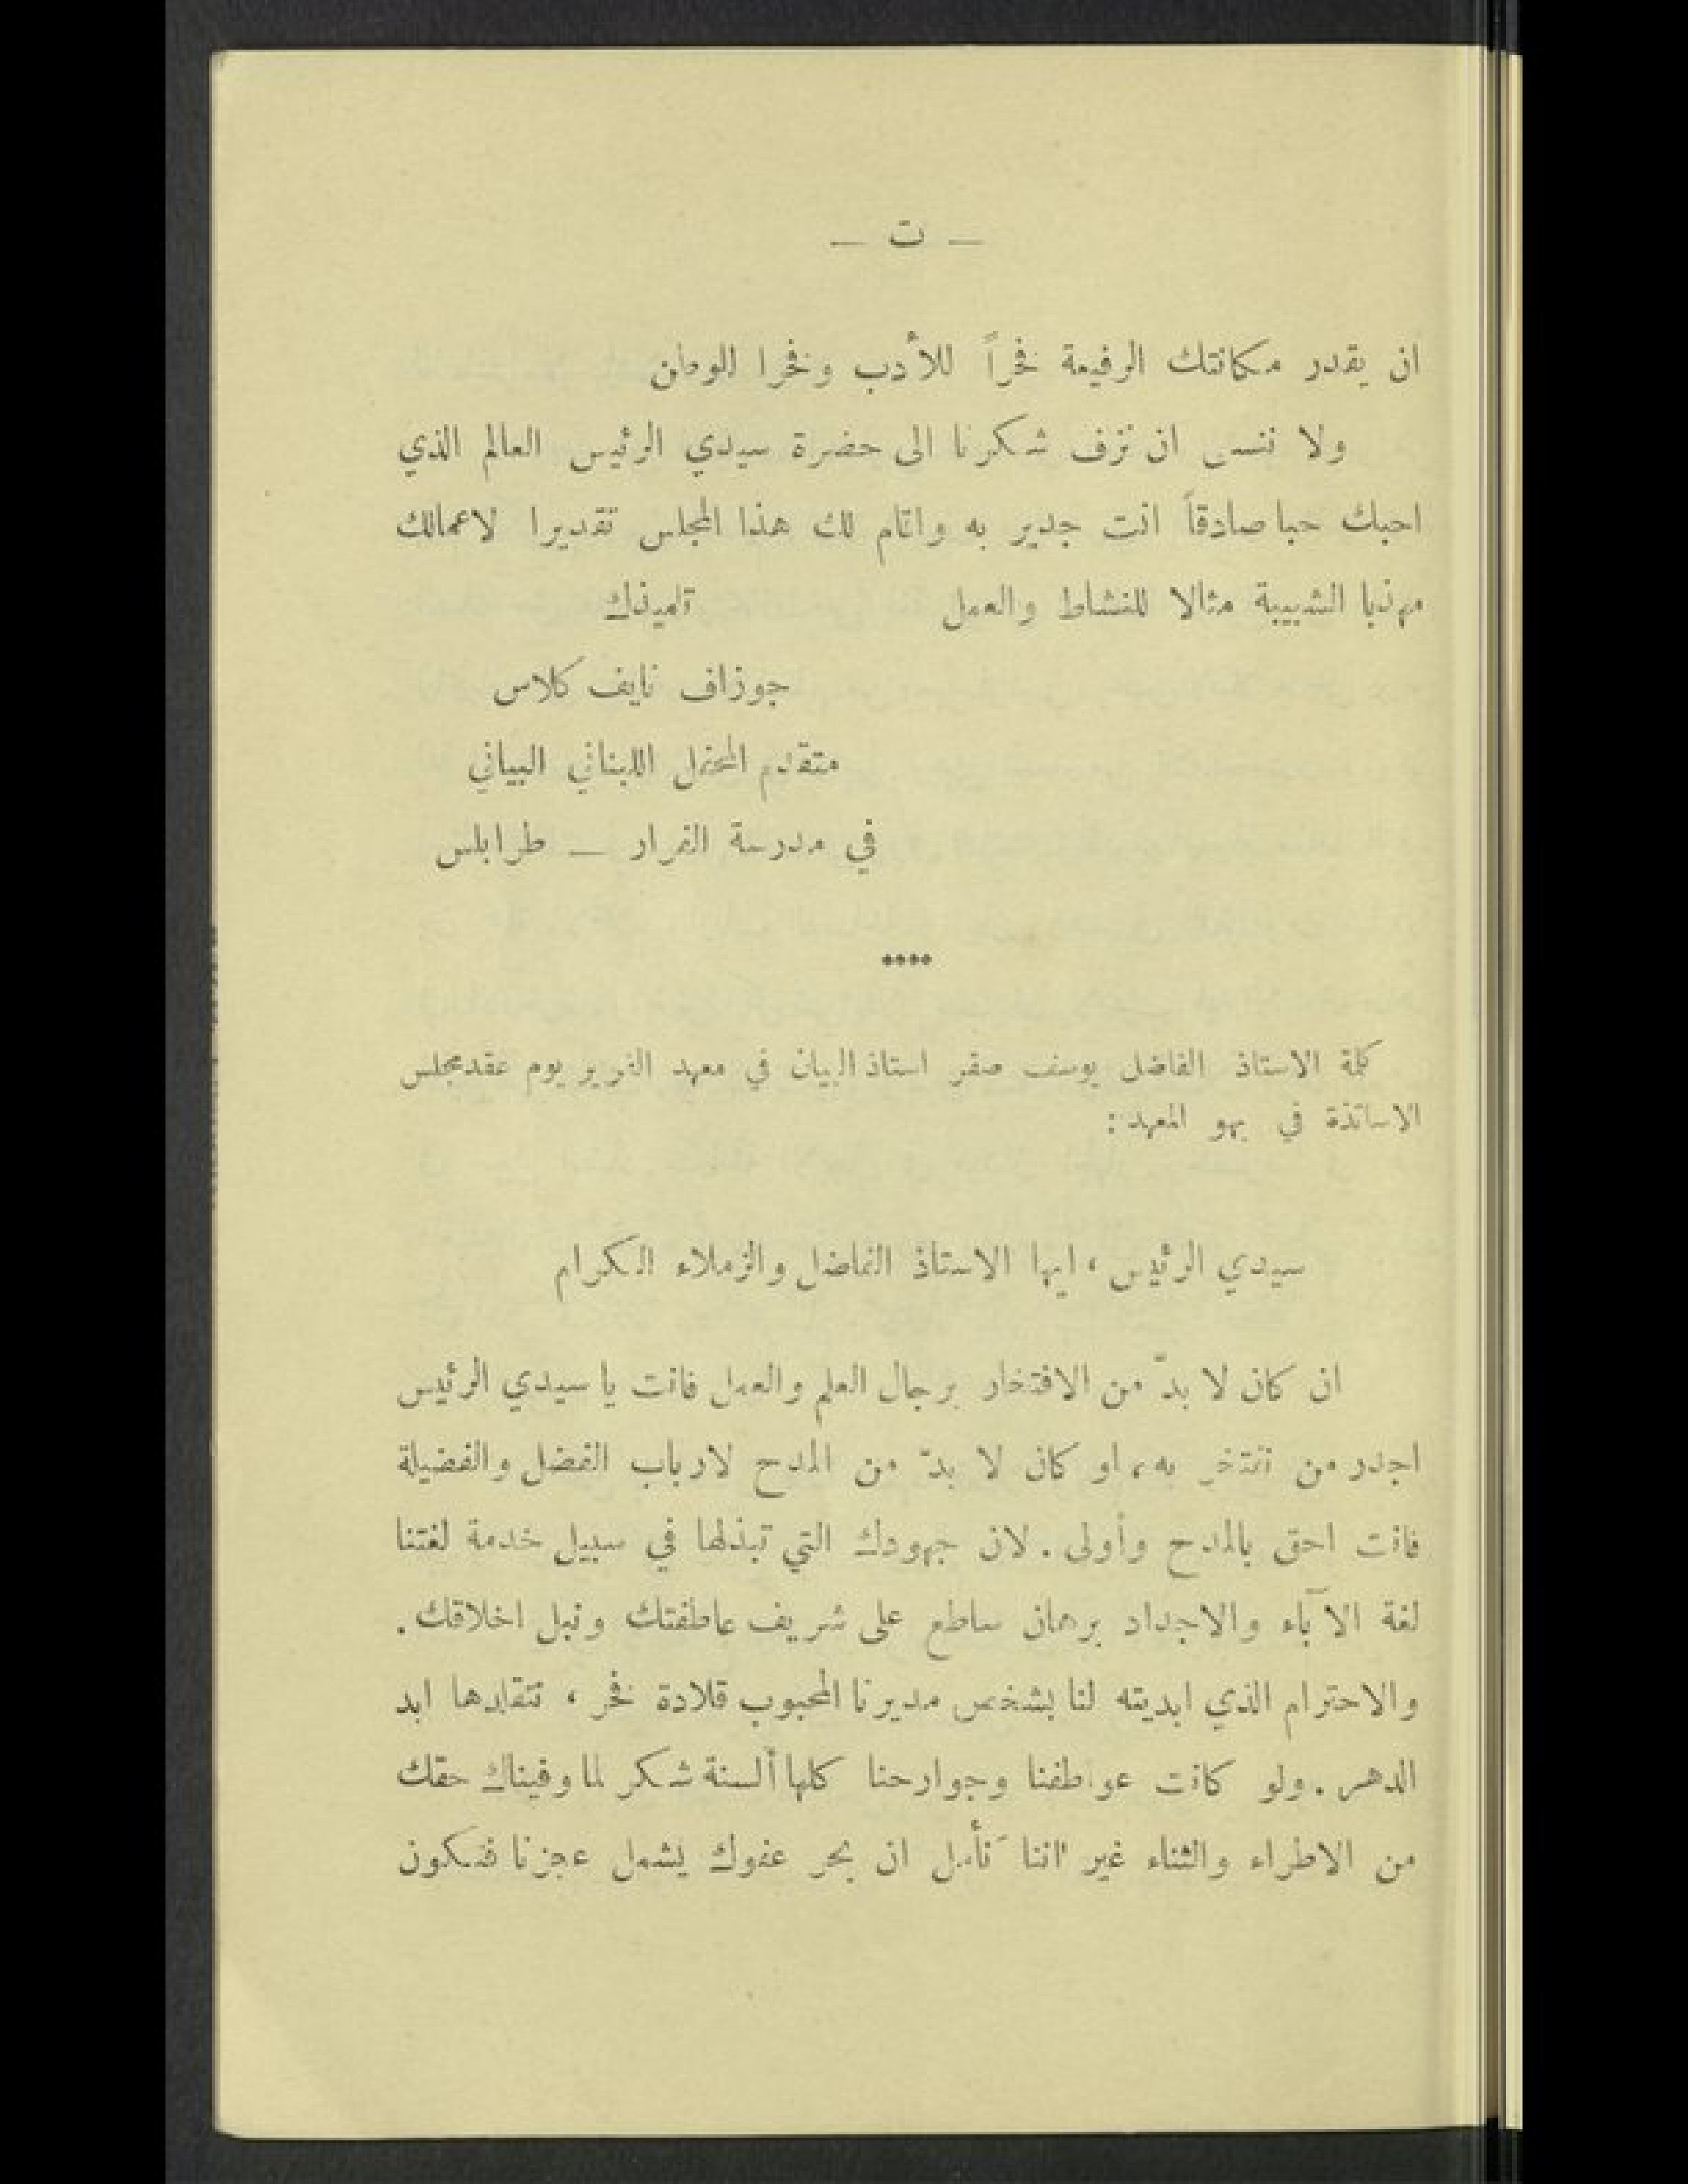 — ت —
ان يقدر مكانتك الرفيعة فخراً للأدب وفخرا للوطن
ولا ننسى ان نزف شكرنا الى حضرة سيدي الرئيس العالم الذي
احبك حبا صادقاً انت جدير به واقام لك هذا المجلس تقديرا لاعمالك
مهذبا الشبيبة مثالا للنشاط والعمل تلميذك
جوزاف نايف كلاس
متقدم المحفل اللبناني البياني
في مدرسة الفرار — طرابلس
****
كلمة الاستاذ الفاضل يوسف صقر استاذ البيان في معهد الفرير يوم عقد مجلس
الاساتذة في بهو المعهد :
سيدي الرئيس ، ايها الاستاذ الفاضل والزملاء الكرام
ان كان لا بدّ من الافتخار برجال العلم والعمل فانت يا سيدي الرئيس
اجدر من نفتخر به ، او كان لا بدّ من المدح لارباب الفضل والفضيلة
فانت احق بالمدح وأولى . لان جهودك التي تبذلها في سبيل خدمة لغتنا
لغة الآباء والاجداد برهان ساطع على شريف عاطفتك ونبل اخلاقك .
والاحترام الذي ابديته لنا بشخص مديرنا المحبوب قلادة فخر ، نتقلدها ابد
الدهر . ولو كانت عواطفنا وجوارحنا كلها ألسنة شكر لما وفيناك حقك
من الاطراء والثناء غير اننا نأمل ان بحر عفوك يشمل عجزنا فنكون